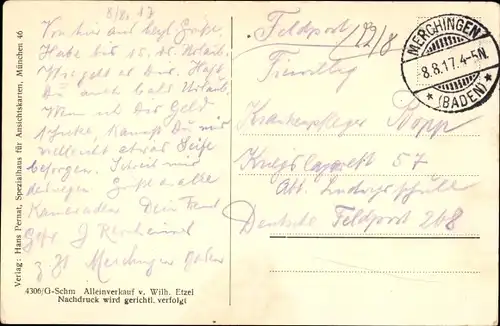 8/8. 17
Von hier aus herzl. Grüße.
Habe bis 15. ds. Urlaub.
Wie geht es Dir. Hast
Du auch bald Urlaub.
Wenn ich Dir Geld
schicke, kannst Du mir
vielleicht etwas Seife
besorgen. Schreib mir
deswegen. Gruß an alle
Kameraden Dein Freund
Gefr. J
z. Zt. Merchingen Baden
Feldpost
22/8
MERCHINGEN
8.8.17.4-5N.
* (BADEN) *
Krankenpfleger Popp
Kriegslazarett 57
Abt. Ludwigsschule
Deutsche Feldpost 268
Verlag: Hans Pernat, Spezialhaus für Ansichtskarten, München 46
4306/G-Schm Alleinverkauf v. Wilh. Etzel
Nachdruck wird gerichtl. verfolgt